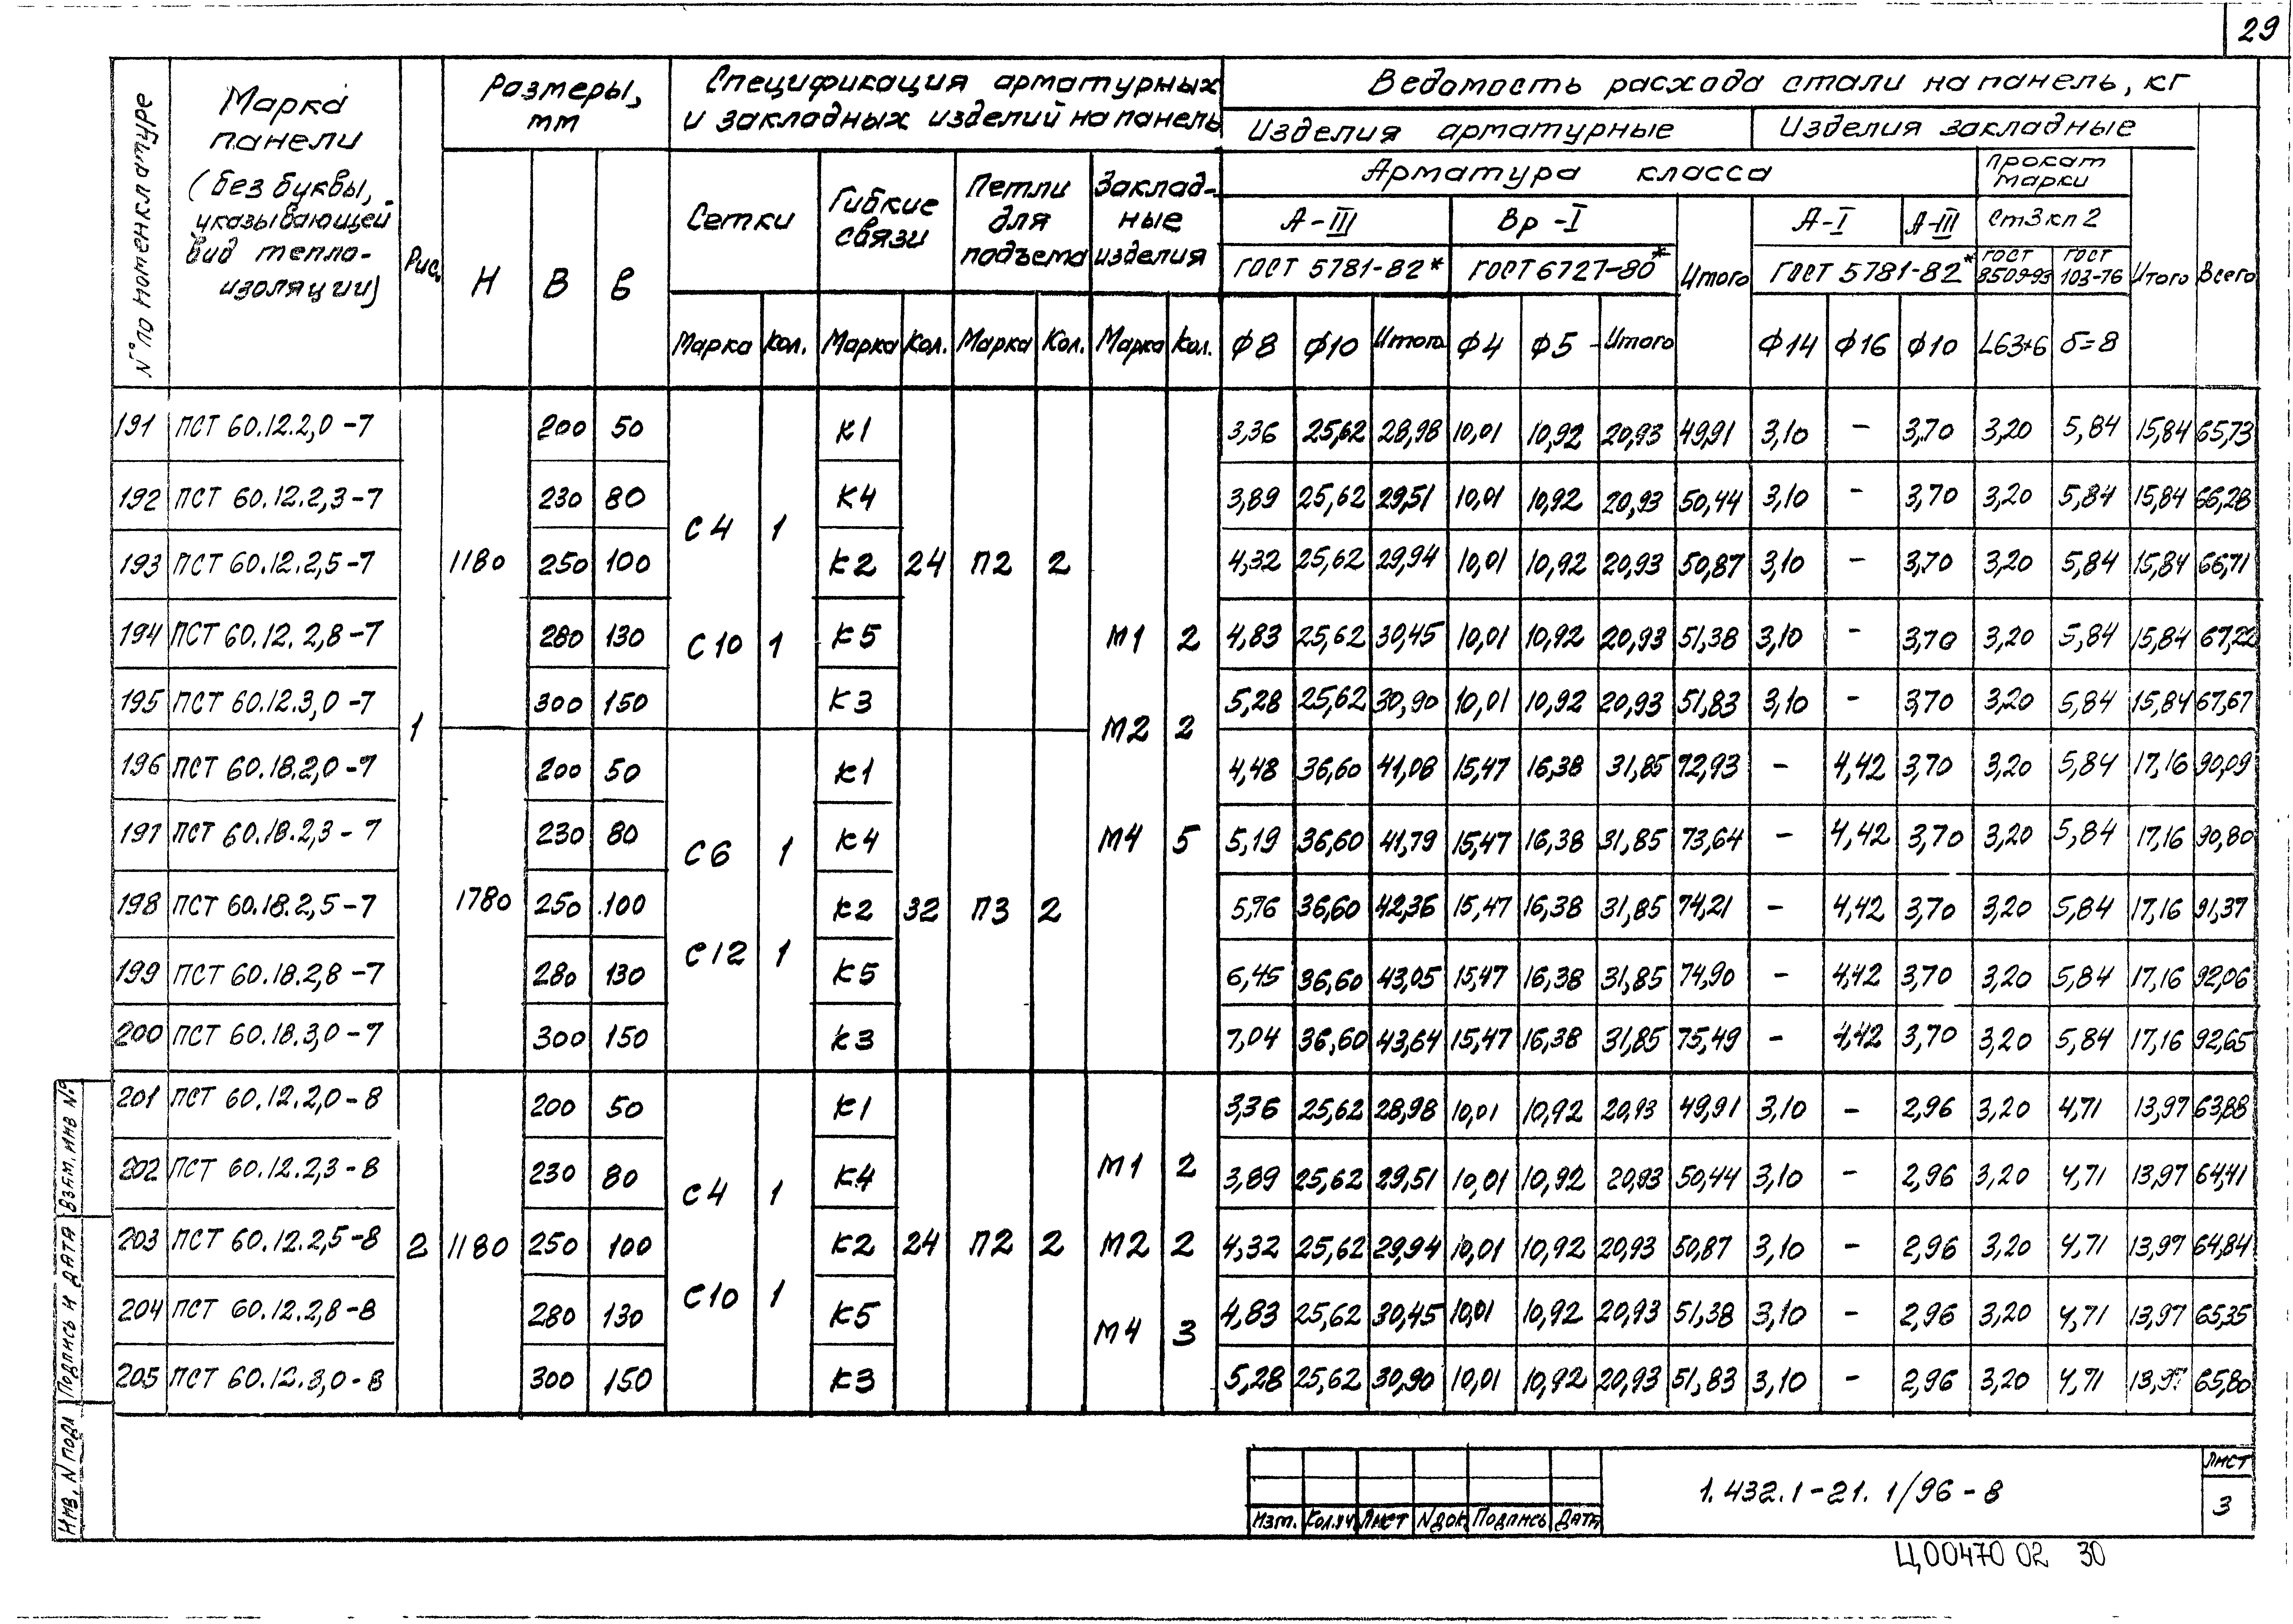 29
N° по номенклатуре
Марка панели (без буквы, указывающей вид тепло-изоляции)
Рис.
Размеры, мм
Спецификация арматурных и закладных изделий на панель
Ведомость расхода стали на панель, кг
Изделия арматурные
Изделия закладные
Н
В
в
Сетки
Гибкие связи
Петли для подъема
Заклад-ные изделия
Арматура класса
Прокат марки
А-III
Вр-I
Итого
А-I
А-III
Ст3кп2
Итого
Всего
ГОСТ 5781-82*
ГОСТ 6727-80*
ГОСТ 5781-82*
ГОСТ 8509-93
ГОСТ 103-76
Марка Кол. Марка Кол. Марка Кол. Марка Кол. Ф8 Ф10 Итого Ф4 Ф5 Итого Ф14 Ф16 Ф10 L63*6 δ=8
191 ПСТ 60.12.2,0-7 200 50 К1 3,36 25,62 28,98 10,01 10,92 20,93 49,91 3,10 - 3,70 3,20 5,84 15,84 65,73
192 ПСТ 60.12.2,3-7 230 80 К4 3,89 25,62 29,51 10,01 10,92 20,93 50,44 3,10 - 3,70 3,20 5,84 15,84 66,28
С4 1
193 ПСТ 60.12.2,5-7 1180 250 100 К2 24 П2 2 4,32 25,62 29,94 10,01 10,92 20,93 50,87 3,10 - 3,70 3,20 5,84 15,84 66,71
194 ПСТ 60.12.2,8-7 280 130 С10 1 К5 М1 2 4,83 25,62 30,45 10,01 10,92 20,93 51,38 3,10 - 3,70 3,20 5,84 15,84 67,22
195 ПСТ 60.12.3,0-7 300 150 К3 5,28 25,62 30,90 10,01 10,92 20,93 51,83 3,10 - 3,70 3,20 5,84 15,84 67,67
1 М2 2
196 ПСТ 60.18.2,0-7 200 50 К1 4,48 36,60 41,08 15,47 16,38 31,85 72,93 - 4,42 3,70 3,20 5,84 17,16 90,09
197 ПСТ 60.18.2,3-7 230 80 К4 М4 5 5,19 36,60 41,79 15,47 16,38 31,85 73,64 - 4,42 3,70 3,20 5,84 17,16 90,80
С6 1
198 ПСТ 60.18.2,5-7 1780 250 100 К2 32 П3 2 5,76 36,60 42,36 15,47 16,38 31,85 74,21 - 4,42 3,70 3,20 5,84 17,16 91,37
С12 1
199 ПСТ 60.18.2,8-7 280 130 К5 6,45 36,60 43,05 15,47 16,38 31,85 74,90 - 4,42 3,70 3,20 5,84 17,16 92,06
200 ПСТ 60.18.3,0-7 300 150 К3 7,04 36,60 43,64 15,47 16,38 31,85 75,49 - 4,42 3,70 3,20 5,84 17,16 92,65
201 ПСТ 60.12.2,0-8 200 50 К1 3,36 25,62 28,98 10,01 10,92 20,93 49,91 3,10 - 2,96 3,20 4,71 13,97 63,88
202 ПСТ 60.12.2,3-8 230 80 С4 1 К4 М1 2 3,89 25,62 29,51 10,01 10,92 20,93 50,44 3,10 - 2,96 3,20 4,71 13,97 64,41
203 ПСТ 60.12.2,5-8 2 1180 250 100 К2 24 П2 2 М2 2 4,32 25,62 29,94 10,01 10,92 20,93 50,87 3,10 - 2,96 3,20 4,71 13,97 64,84
204 ПСТ 60.12.2,8-8 280 130 С10 1 К5 М4 3 4,83 25,62 30,45 10,01 10,92 20,93 51,38 3,10 - 2,96 3,20 4,71 13,97 65,35
205 ПСТ 60.12.3,0-8 300 150 К3 5,28 25,62 30,90 10,01 10,92 20,93 51,83 3,10 - 2,96 3,20 4,71 13,97 65,80
Взам. инв №
Подпись и дата
Инв. N подл
Изм. Кол.уч Лист Nдок Подпись Дата
1.432.1-21.1/96-8
Лист
3
Ц00470 02 30